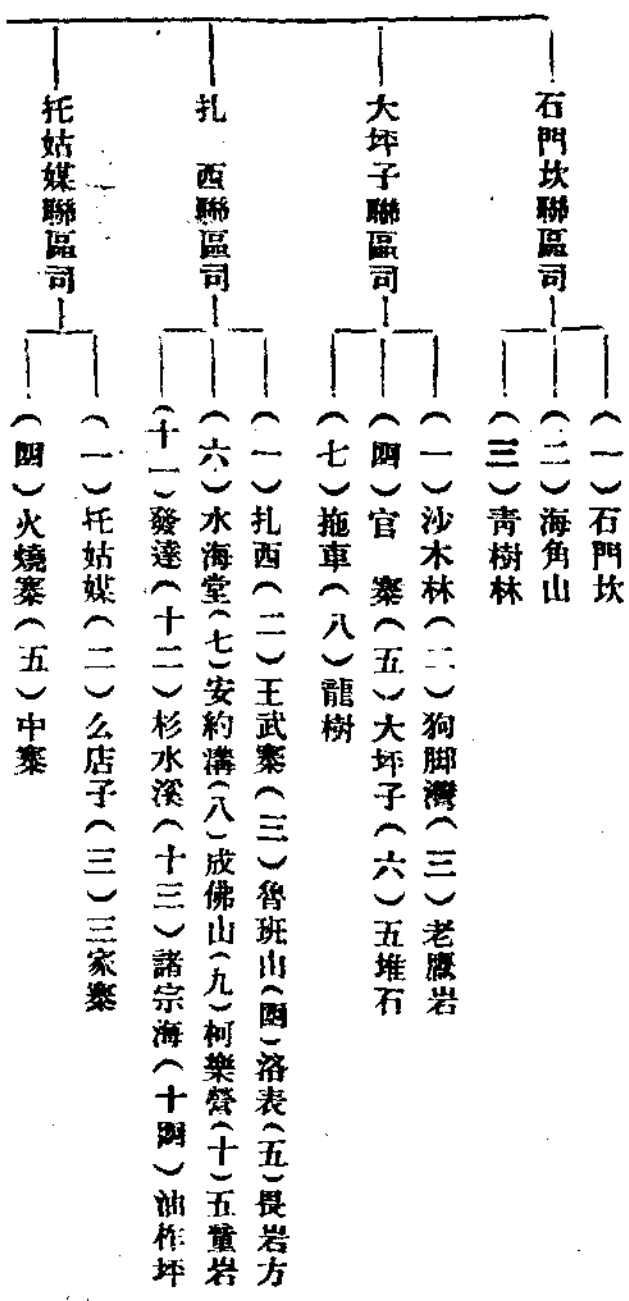 石門坎聯區司
(一)石門坎
(二)海角山
(三)青樹林
大坪子聯區司
(一)沙木林(二)狗脚灣(三)老鷹岩
(四)官　寨(五)大坪子(六)五堆石
(七)拖車(八)龍樹
扎　西聯區司
(一)扎西(二)王武寨(三)魯班山(四)洛表(五)畏岩方
(六)水海堂(七)安約溝(八)成佛山(九)柯樂營(十)五童岩
(十一)發達(十二)杉水溪(十三)諸宗海(十四)油柞坪
托姑媒聯區司
(一)托姑媒(二)么店子(三)三家寨
(四)火燒寨(五)中寨